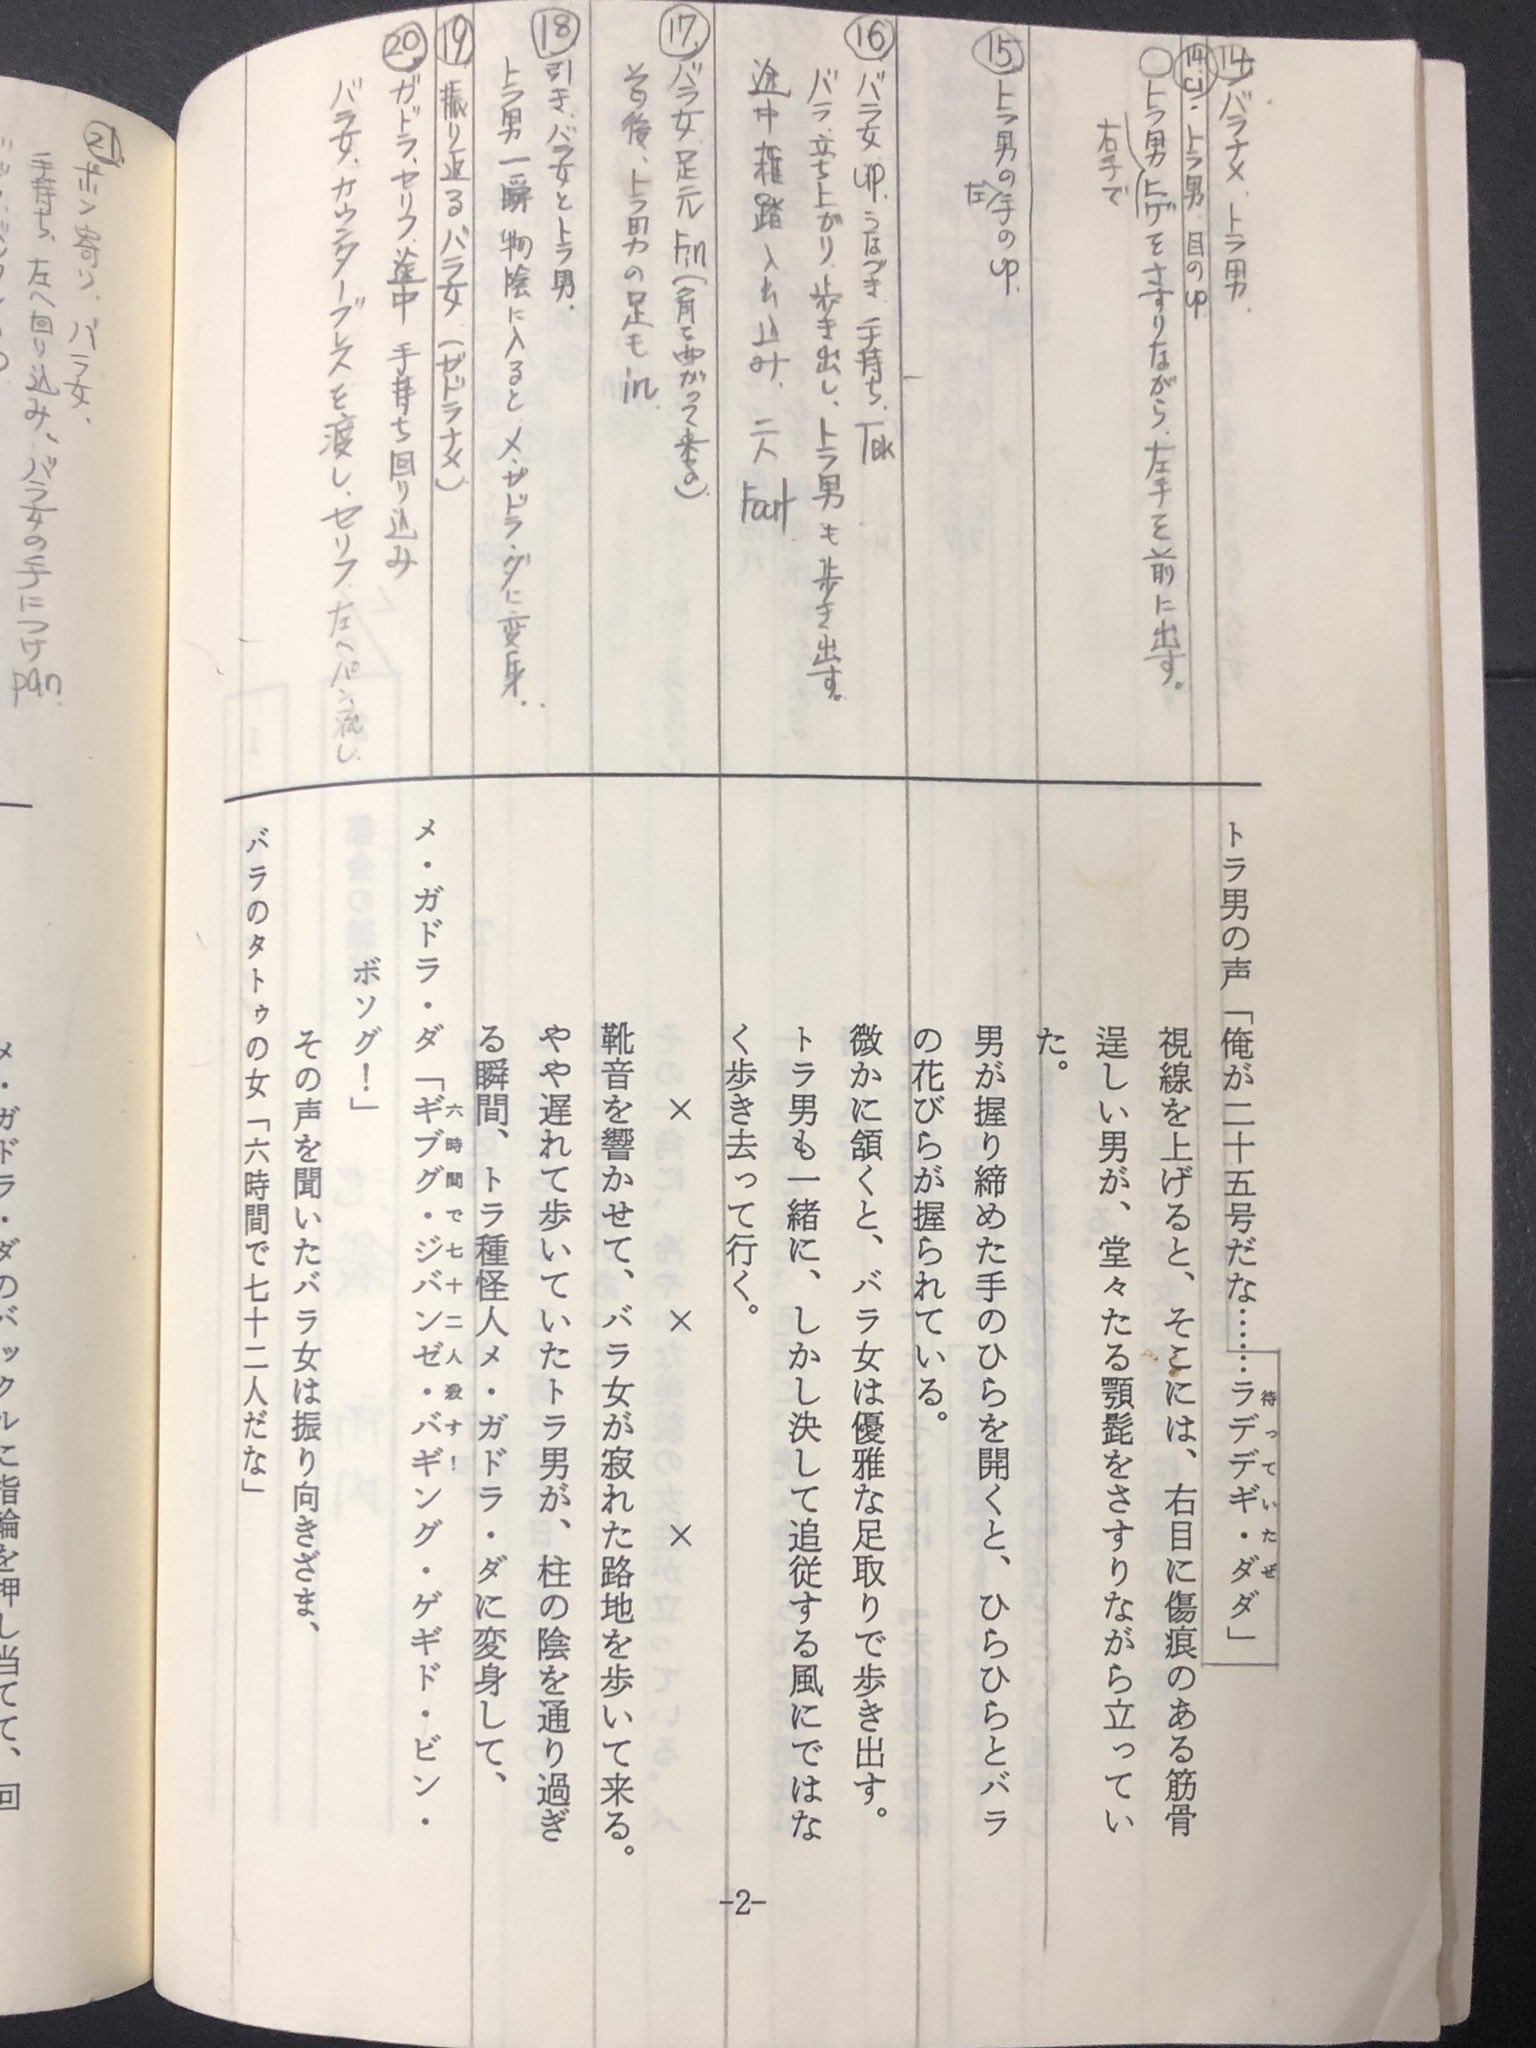 ⑭バラナメ、トラ男、
⑭c1:トラ男、目のup
○トラ男、上ゲをさすりながら、左手を前に出す。
右手で
⑮トラ男の手のup.
左
⑯バラ女up.うなづき、手持ち、TBK
バラ、立ち上がり、歩き出し、トラ男も歩き出す。
途中雑踏入れ込み、二人Fout
⑰バラ女足元Fin(角を曲がって来る)
その後、トラ男の足もin
⑱引き、バラ女とトラ男、
トラ男一瞬物陰に入ると、メ・ガドラ・ダに変身、
⑲振り返るバラ女(ガドラナメ)
⑳ガドラ、セリフ、途中手持ち回り込み
バラ女、カウンターブレスを渡し、セリフ、左へパン流し
トラ男の声「俺が二十五号だな……ラデデギ・ダダ」
待っていたぜ
視線を上げると、そこには、右目に傷痕のある筋骨
逞しい男が、堂々たる顎髭をさすりながら立ってい
た。
男が握り締めた手のひらを開くと、ひらひらとバラ
の花びらが握られている。
微かに頷くと、バラ女は優雅な足取りで歩き出す。
トラ男も一緒に、しかし決して追従する風にではな
く歩き去って行く。
× × ×
靴音を響かせて、バラ女が寂れた路地を歩いて来る。
やや遅れて歩いていたトラ男が、柱の陰を通り過ぎ
る瞬間、トラ種怪人メ・ガドラ・ダに変身して、
六時間で七十二人殺す!
メ・ガドラ・ダ「ギブグ・ジバンゼ・バギング・ゲギド・ビン・
ボソグ!」
その声を聞いたバラ女は振り向きざま、
バラのタトゥの女「六時間で七十二人だな」
-2-
㉑ポン寄り、バラ女、
手持ち、左へ回り込み、バラ女の手につけpan
メ・ガドラ・ダのバックルに指輪を押し当てて、回